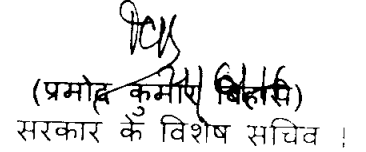 (प्रमोद कुमार बिहारी)
सरकार के विशेष सचिव ।